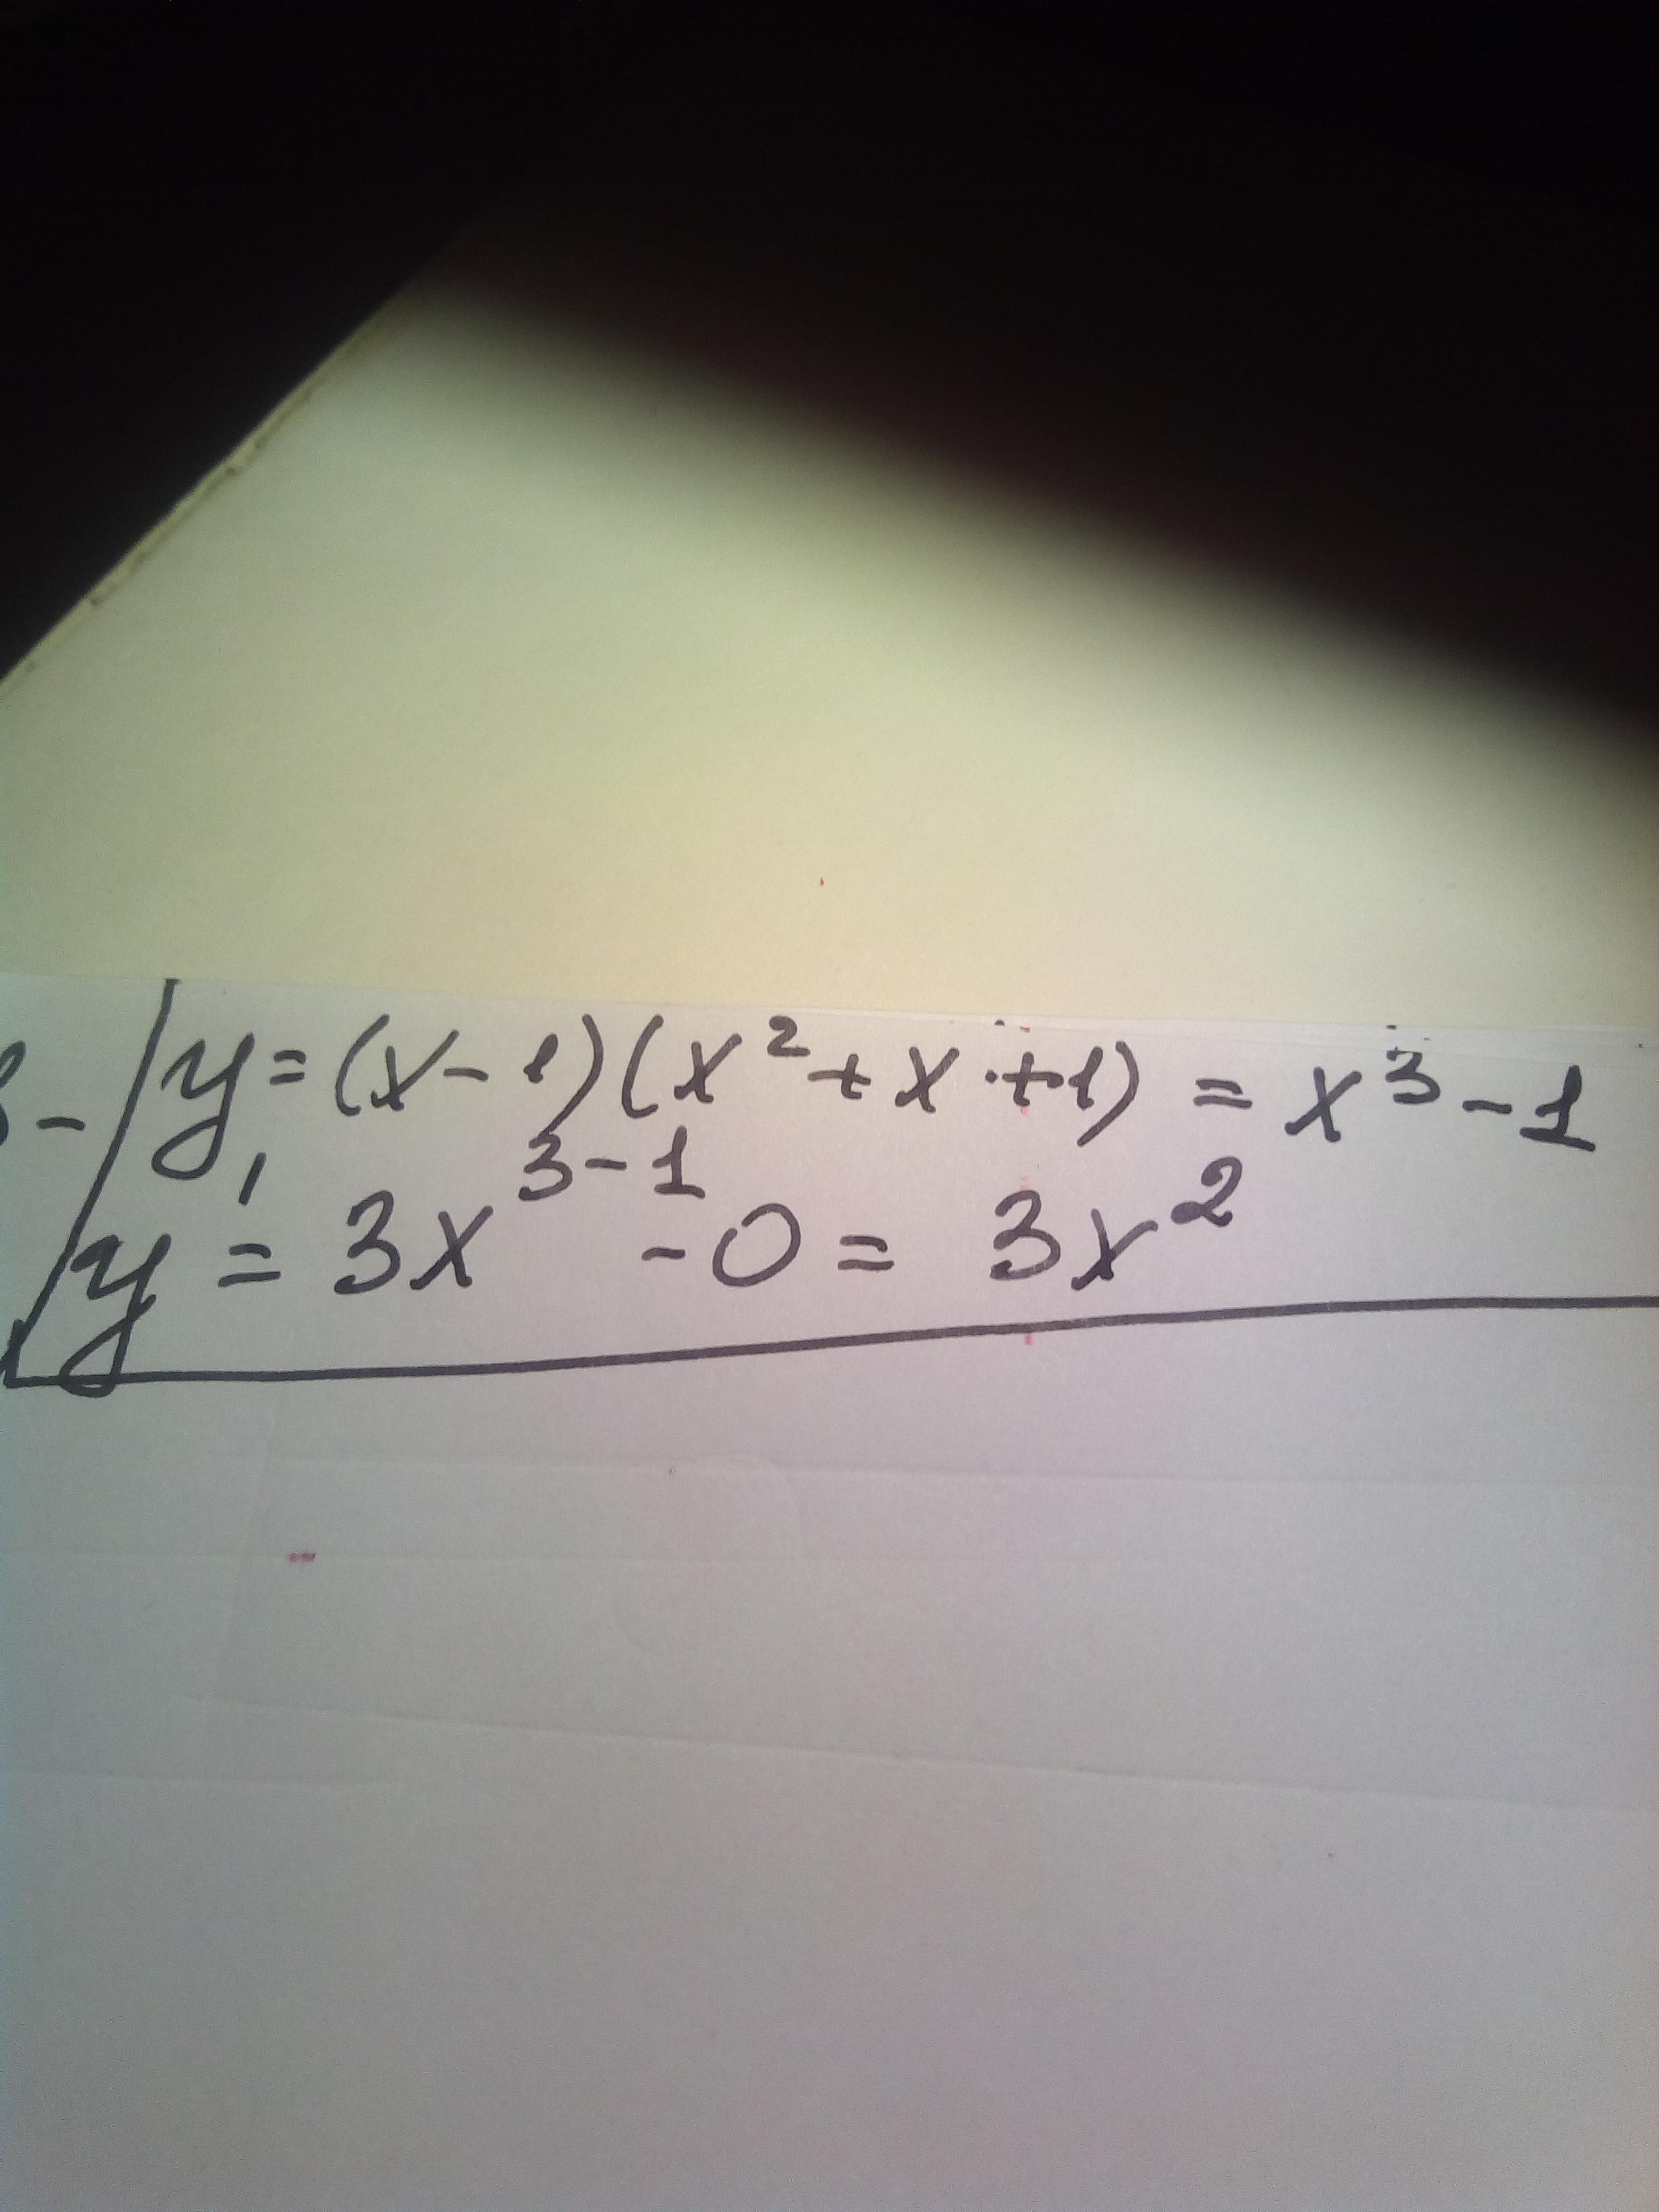 - y = (x - 1)(x² + x + 1) = x³ - 1
y' = 3x³⁻¹ - 0 = 3x²